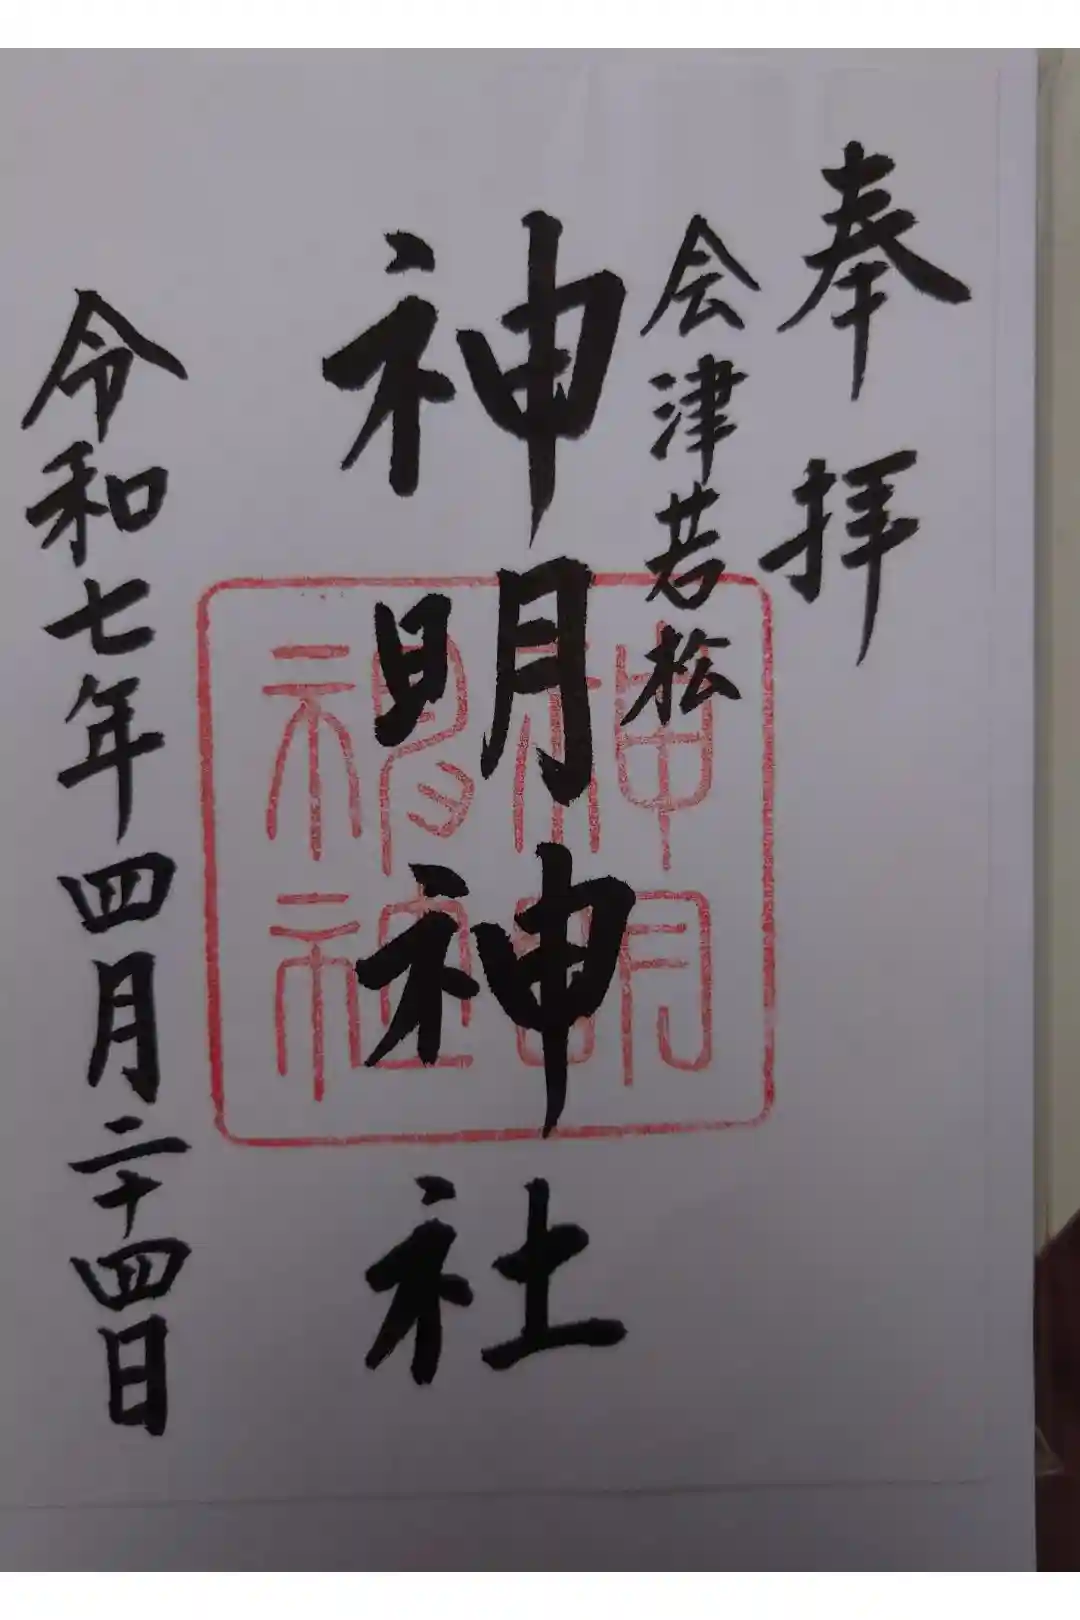 奉拝
会津若松
神明神社
神明
神社
令和七年四月二十四日